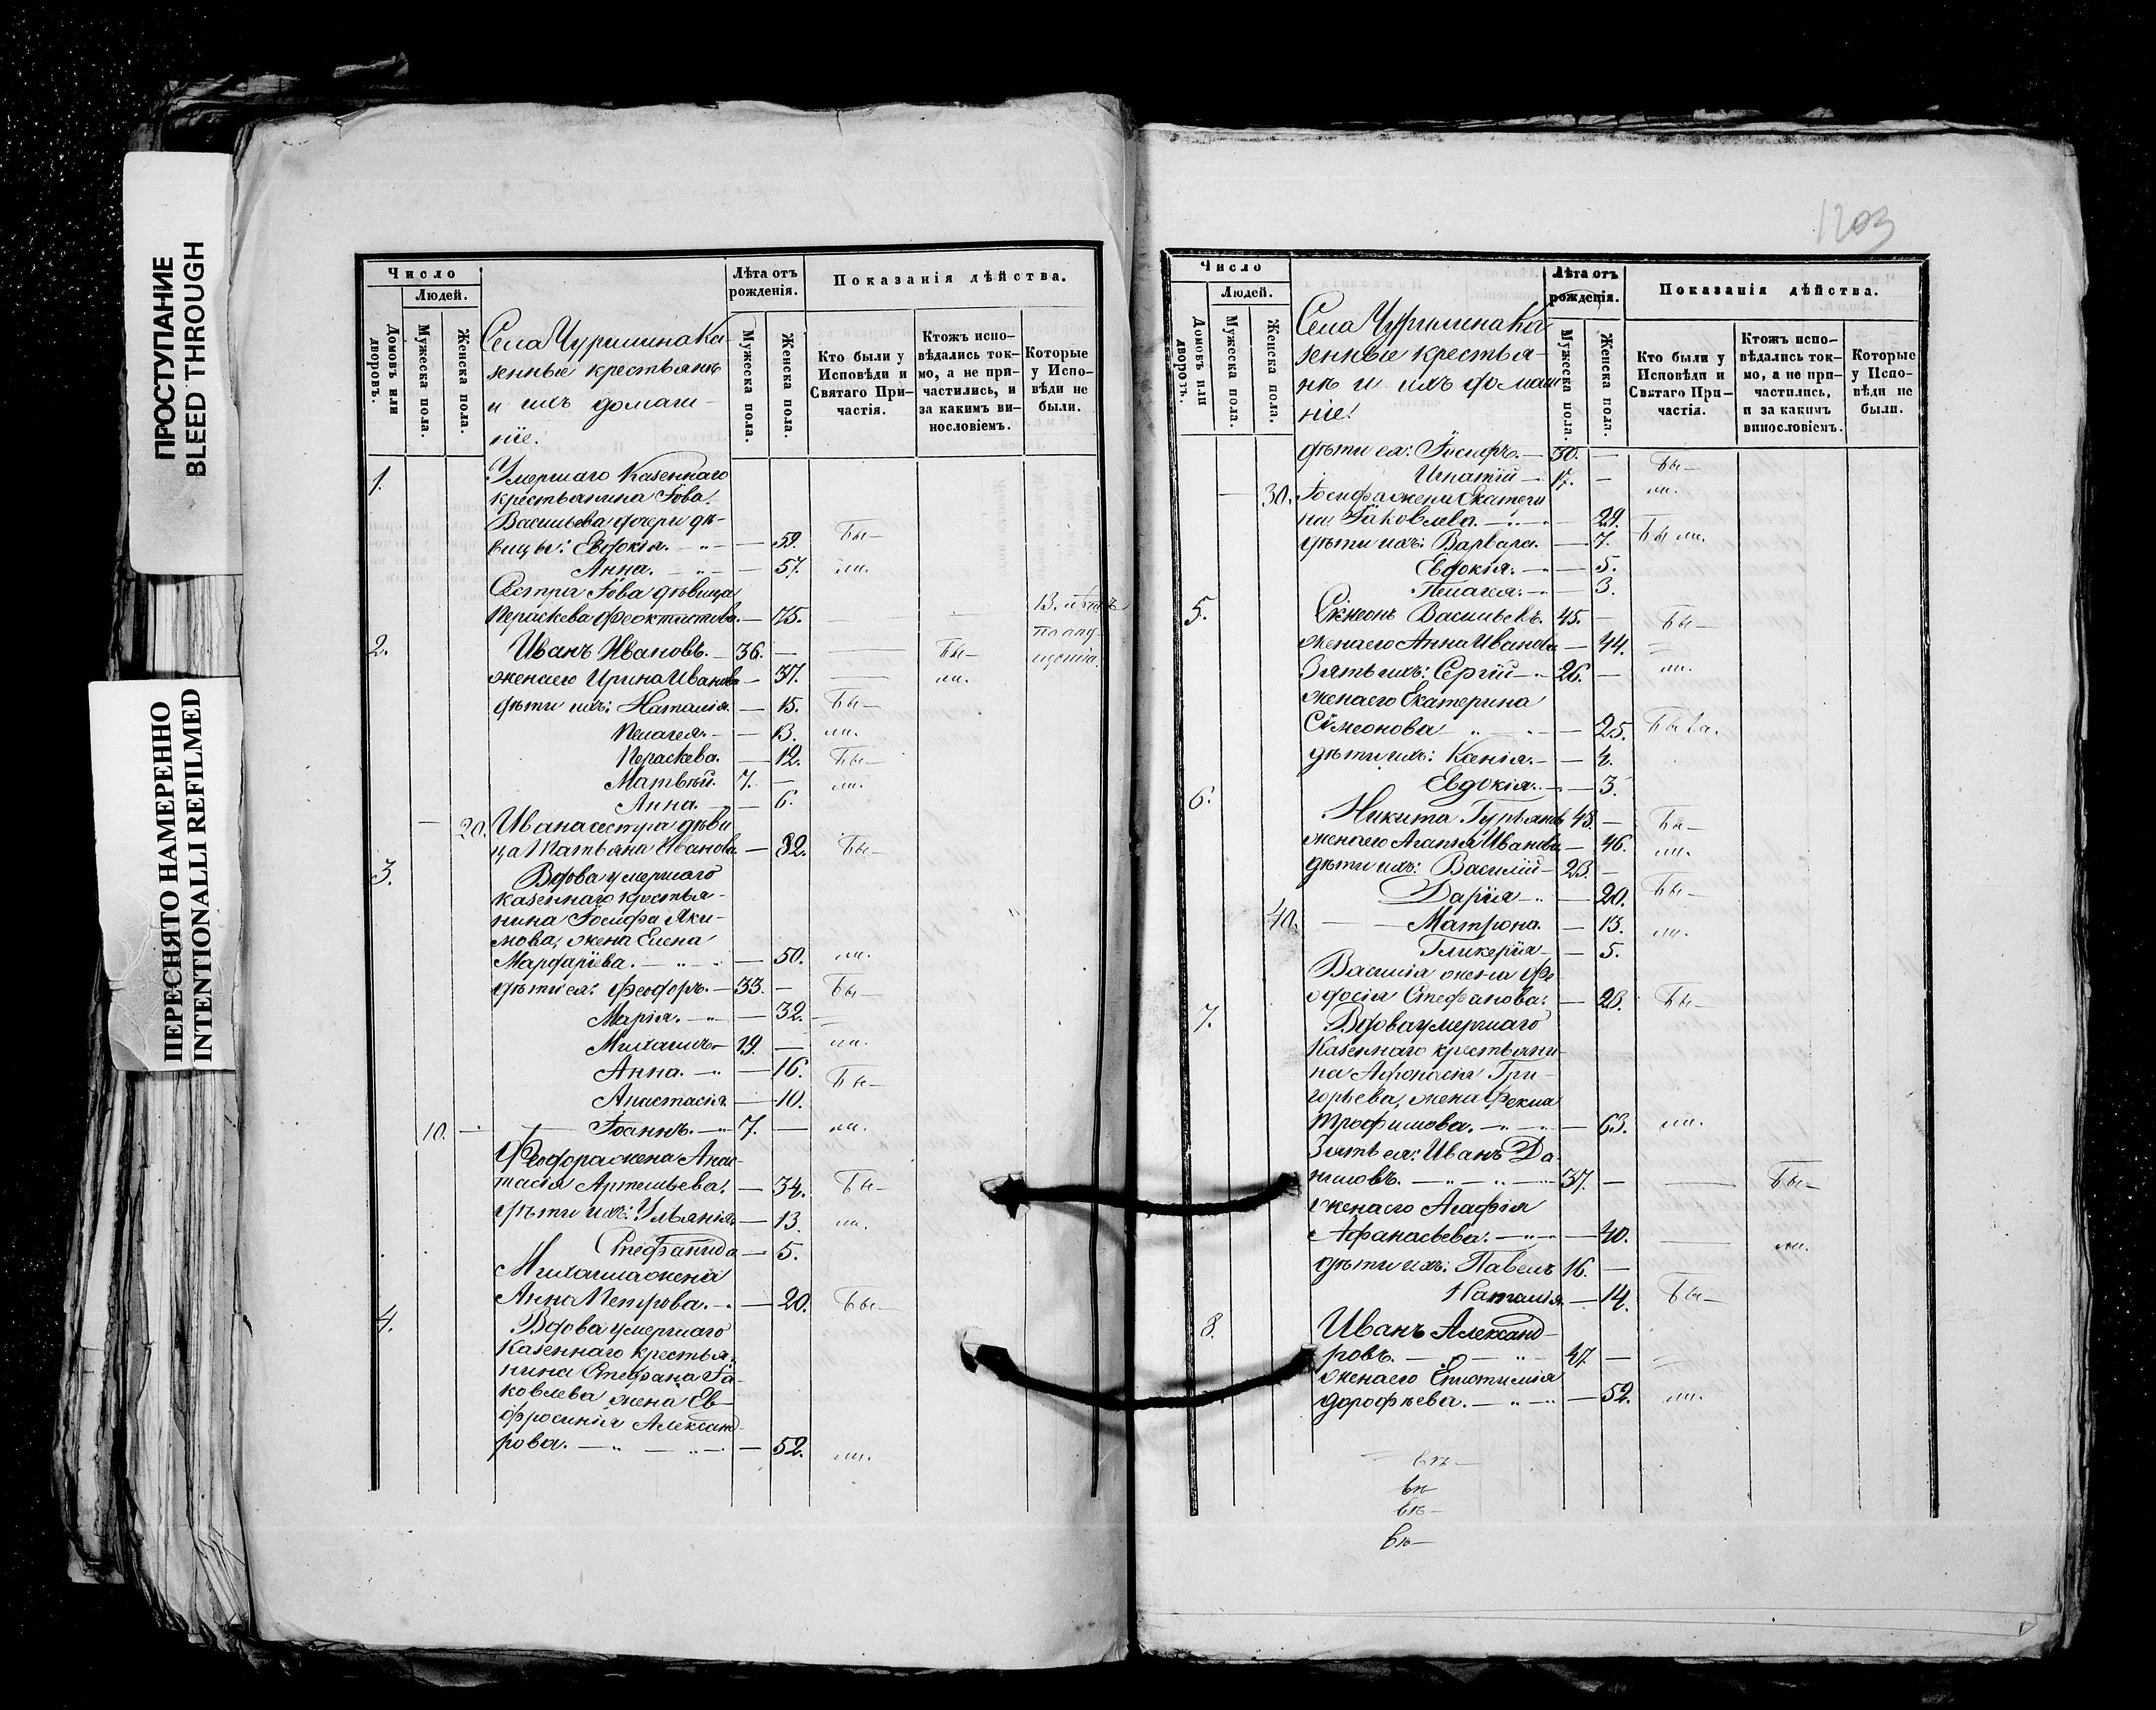 ПРОСТУПАНИЕ
BLEED THROUGH
ПЕРЕСНЯТО НАМЕРЕННО
INTENTIONALLI REFILMED
Число
Людей.
Домовъ или дворовъ.
Мужеска пола.
Женска пола.
Села Чуришина Ка-
зенные крестьянъ
и ихъ домаш-
ніе.
Лѣта отъ рожденія.
Мужеска пола.
Женска пола.
Показанія дѣйства.
Кто были у Исповѣди и Святаго Причастія.
Ктожъ исповѣдались токмо, а не причастились, и за какимъ винословіемъ.
Которые у Исповѣди не были.
1. Умершаго Казеннаго
крестьянина Іова
Васильева дочери дѣ-
вицы: Евдокія. — 59. Бы—
Анна. — 57. ли.
Сестра Іова дѣвица
Пераскева Феоктистова. — 75. —
2. Иванъ Ивановъ. — 36. — — Бы—
жена его Ирина Иванова — 37. — ли.
дѣти ихъ: Наталія. — 15. Бы—
Пелагея. — 13. ли.
Пераскева. — 12. Бы—
Матвѣй. 7. — ли.
Анна. — 6.
20. Ивана сестра дѣви
ца Татьяна Иванова. — 32. Бы—
3. Вдова умершаго
казеннаго крестья-
нина Іосифа Яки-
мова, жена Елена
Мардарїева. — 50. ли.
дѣти ея: Феодоръ. — 33. — Бы—
Марія. — 32. —
Михаилъ — 19. — ли.
Анна. — 16.
Бы—
Анастасія. — 10.
10. — Іоаннъ. — 7. — ли.
Феодора жена Анас-
тасія Артемьева. — 34. Бы—
дѣти ихъ: Ульянія. — 13. ли.
Стефанида — 5.
Михаила жена
Анна Петрова. — 20. Бы—
4. Вдова умершаго
Казеннаго крестья-
нина Стефана Іа-
ковлева жена Ев-
фросинія Александ-
рова. — 52. ли.
1203
Число
Людей.
Домовъ или дворовъ.
Мужеска пола.
Женска пола.
Села Чуришина Ка
зенные крестья-
нъ и ихъ домаш
ніе.
Лѣта отъ рожденія.
Мужеска пола.
Женска пола.
Показанія дѣйства.
Кто были у Исповѣди и Святаго Причастія.
Ктожъ исповѣдались токмо, а не причастились, и за какимъ винословіемъ.
Которые у Исповѣди не были.
дѣти ея: Іосифъ. — 30. — Бы—
Игнатій — 17. — ли.
30. Іосифа жена Екатери
на Іаковлева. — 29.
дѣти ихъ: Варвара. — 7. Были.
Евдокія. — 5.
Пелагея. — 3.
5. Сѵмеонъ Васильевъ. 45. — Бы—
жена его Анна Иванова — 44. —
Зять ихъ: Сергій — 26. — ли.
жена его Екатерина
Сѵмеонова — 25. Была.
дѣти ихъ: Ксенія. — 4.
Евдокія. — 3.
6. Никита Гурьянъ 48. — Бы—
жена его Агапія Иванова — 46. ли.
дѣти ихъ: Василій — 23. —
Дарія — 20. Бы—
40. Матрона. — 13. ли.
Гликерія — 5.
Василія жена Фе
одосія Стефанова. — 28. Бы—
7. Вдова умершаго
Казеннаго крестьяни-
на Афонасія Гри-
горьева, жена Фекла
Трофимова. — 63. ли.
Зять ея: Иванъ Да-
ниловъ. — 37. — — Бы—
жена его Агафія
Афанасьева. — 40. — ли.
дѣти ихъ: Павелъ 16. —
Наталія. — 14. Бы—
8. Иванъ Александ-
ровъ. — 47 — —
жена его
Дорофѣева. — 52. ли.